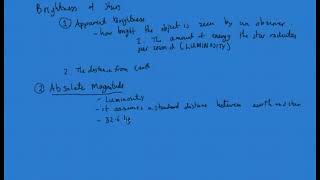 Brightness of Stars
① Apparent Brightness
- how bright the object is seen by an observer.
1. The amount of energy the star radiates
per second (LUMINOSITY)
2. The distance from Earth
② Absolute Magnitude
- Luminosity
- it assumes a standard distance between earth and star
- 32.6 lig